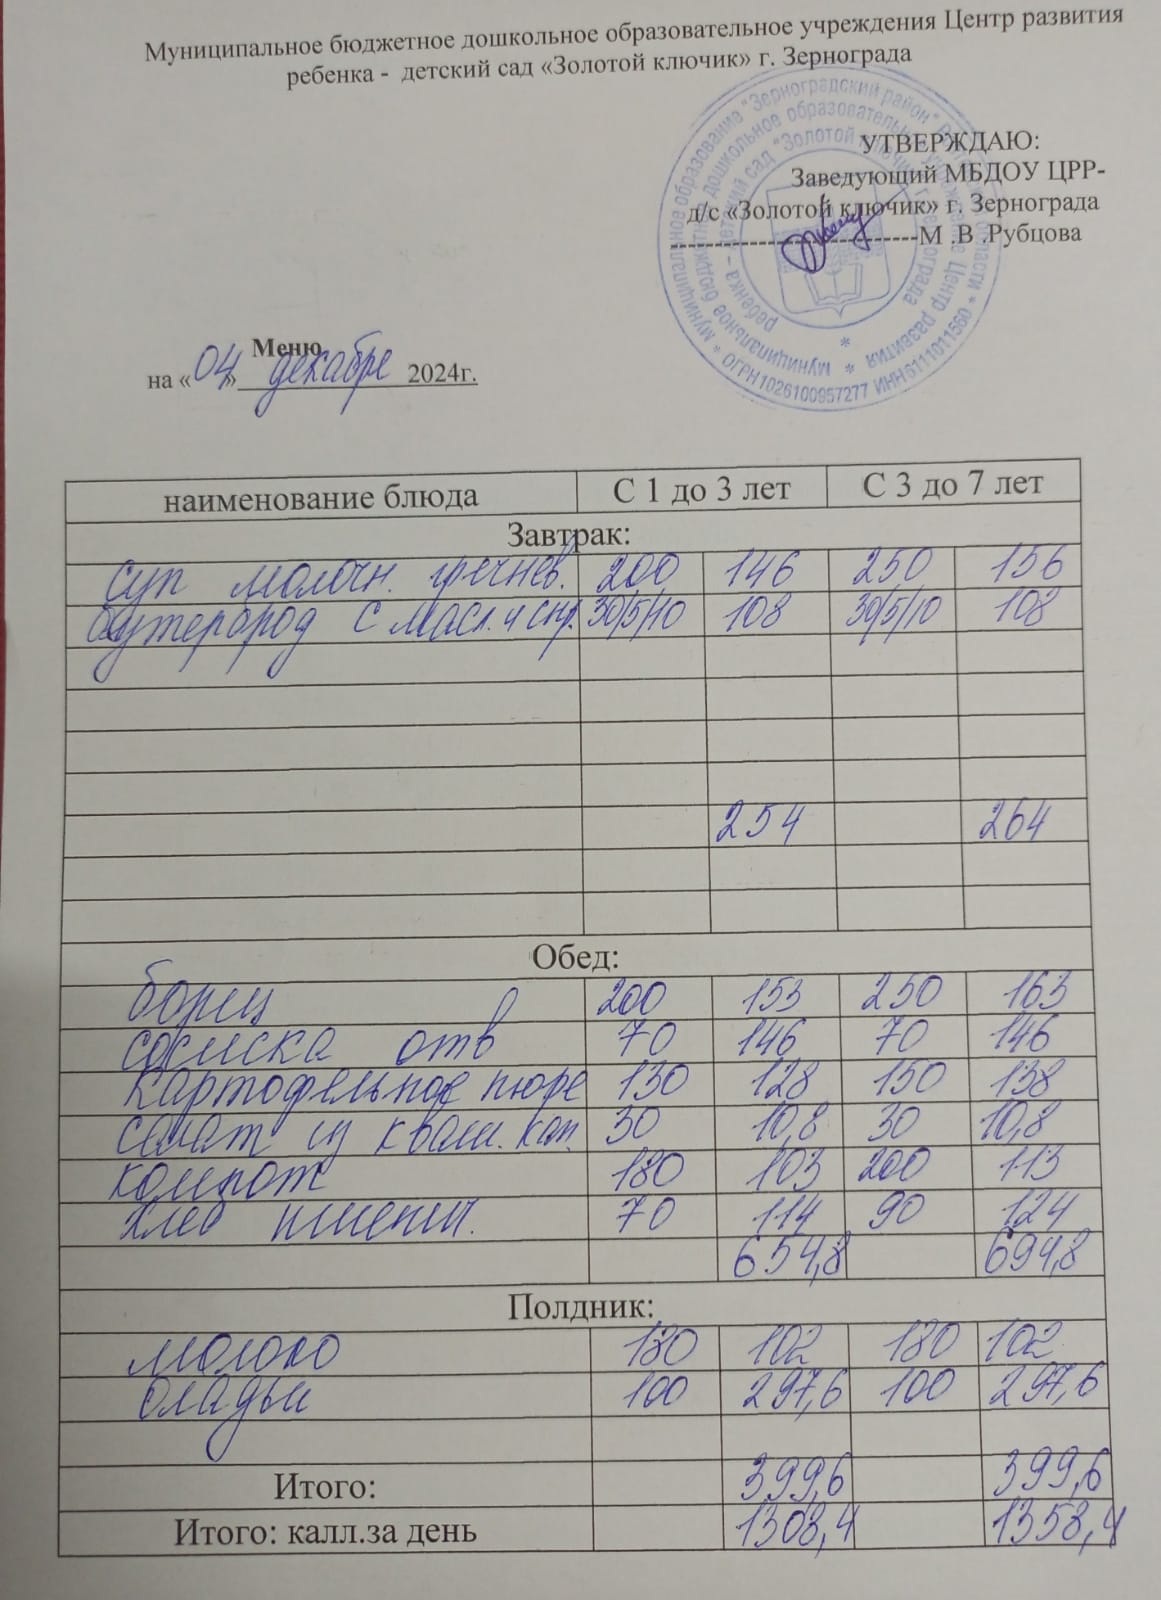 Муниципальное бюджетное дошкольное образовательное учреждения Центр развития
ребенка - детский сад «Золотой ключик» г. Зернограда
УТВЕРЖДАЮ:
Заведующий МБДОУ ЦРР-
д/с «Золотой ключик» г. Зернограда
-----------------------------М .В .Рубцова
ОГРН 1026100957277 ИНН 6111011560
Меню
на «04» декабре 2024г.
наименование блюда С 1 до 3 лет С 3 до 7 лет
Завтрак:
суп молочн. гречнев. 200 146 250 156
бутерброд с масл. и сыр. 30/5/10 108 30/5/10 108
254 264
Обед:
борщ 200 153 250 163
сосиска отв 70 146 70 146
картофельное пюре 130 128 150 138
салат из кваш. кап. 30 10,8 30 10,8
компот 180 103 200 113
хлеб пшенич. 70 114 90 124
654,8 694,8
Полдник:
молоко 180 102 180 102
оладьи 100 297,6 100 297,6
Итого: 399,6 399,6
Итого: калл.за день 1308,4 1358,4